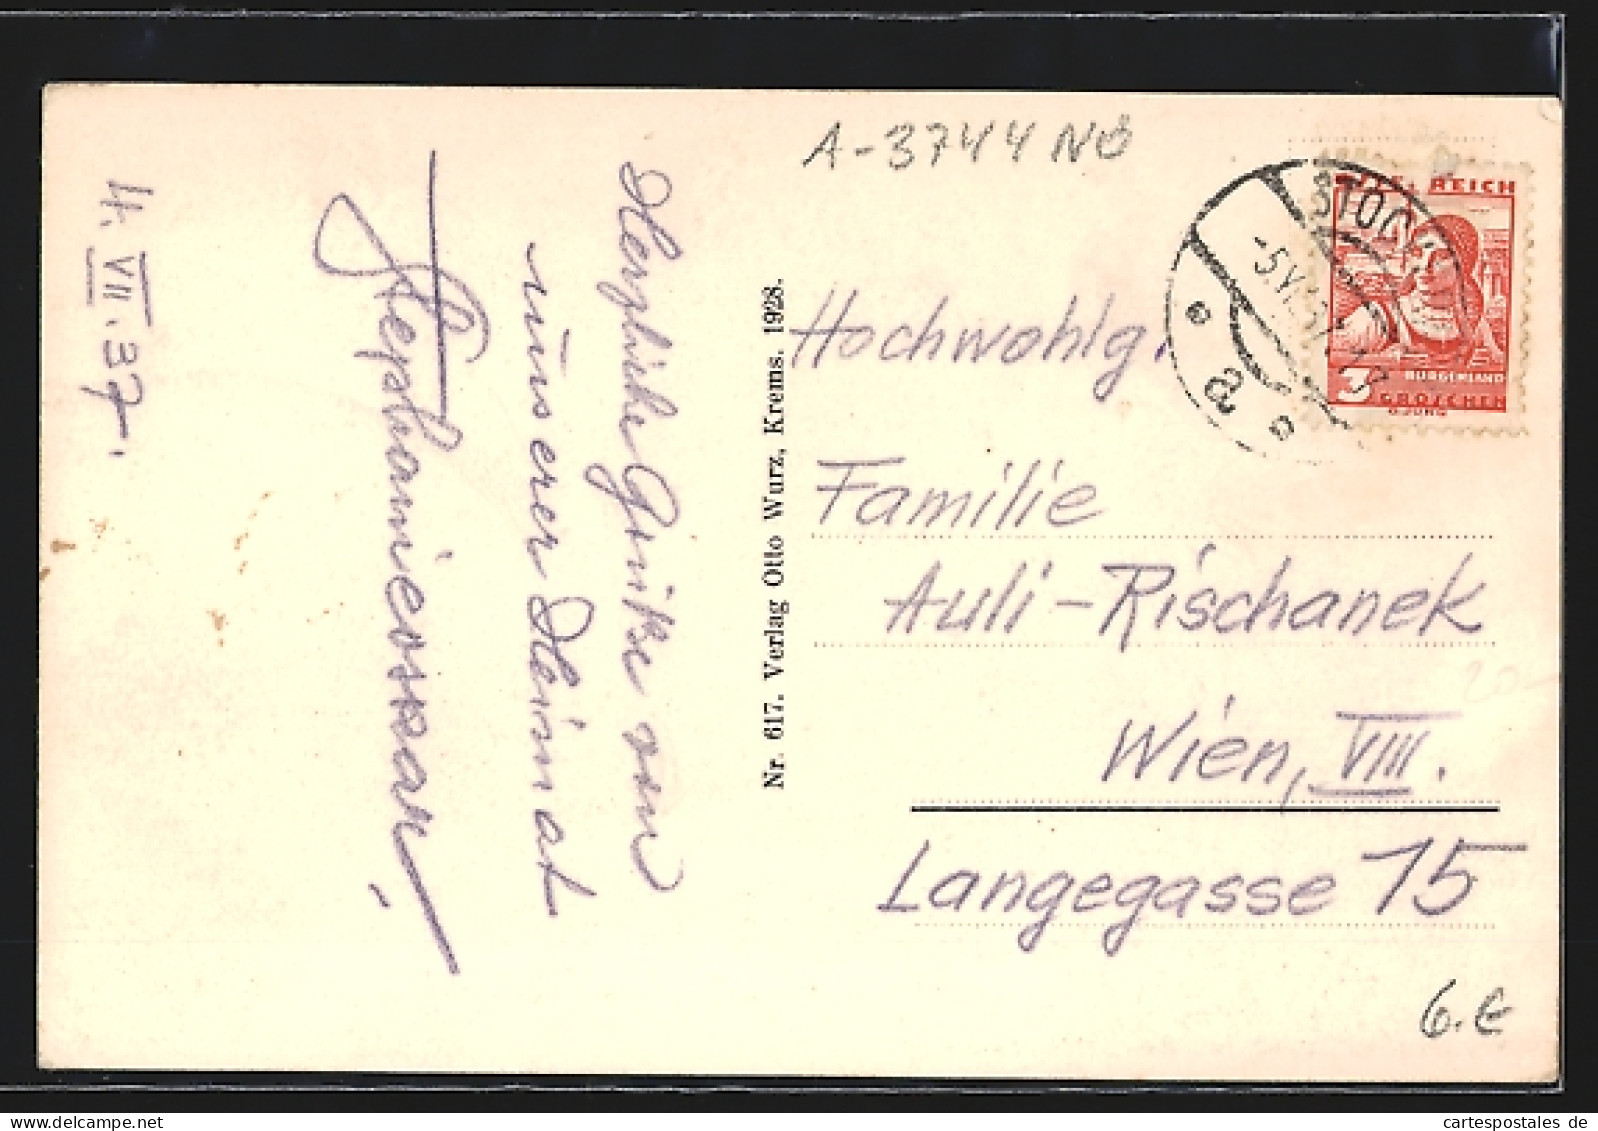 A-3744 NÖ
4. VII. 37.
Herzliche Grüße von
unserer Heimat
Nr. 617. Verlag Otto Wurz, Krems. 1928.
REICH
BURGENLAND
3 GROSCHEN
a
Hochwohlg.
Familie
Auli-Rischanek
Wien, VIII.
Langegasse 15
6.€
cartespostales.de